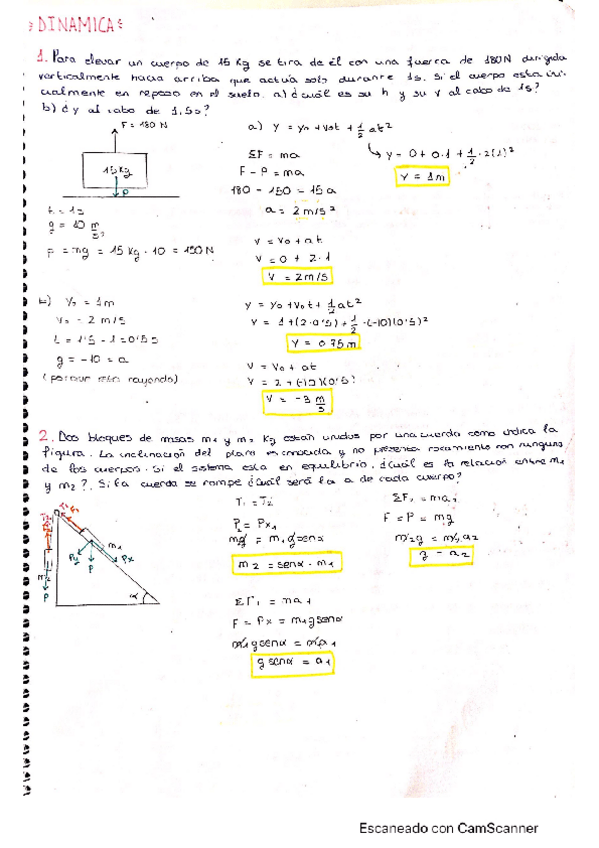 DINAMICA
1. Para elevar un cuerpo de 15 Kg se tira de él con una fuerza de 180N dirigida
verticalmente hacia arriba que actúa solo durante 1s. Si el cuerpo esta ini-
cialmente en reposo en el suelo. a) ¿cuál es su h y su v al cabo de 1s?
b) ¿y al cabo de 1,5s?
F = 180 N
15 Kg
P
t = 1s
g = 10 m/s²
P = mg = 15 Kg · 10 = 150 N
a) y = y0 + v0t + 1/2 at²
y = 0 + 0·1 + 1/2 · 2(1)²
y = 1m
ΣF = ma
F - P = ma
180 - 150 = 15a
a = 2 m/s²
v = v0 + at
v = 0 + 2·1
v = 2m/s
b) y0 = 1m
v0 = 2 m/s
t = 1'5 - 1 = 0'5s
g = -10 = a
y = y0 + v0t + 1/2 at²
y = 1 + (2·0'5) + 1/2 · (-10)(0'5)²
y = 0'75m
v = v0 + at
v = 2 + (-10)(0'5)
v = -3 m/s
2. Dos bloques de masas m1 y m2 Kg están unidos por una cuerda como indica la
figura. La inclinación del plano es conocida y no presenta rozamiento con ninguno
de los cuerpos. Si el sistema esta en equilibrio, ¿cuál es la relación entre m1
y m2?. Si la cuerda se rompe ¿cuál será la a de cada cuerpo?
m1
Py
P
Px
m2
P
α
T1 = T2
P2 = Px1
m2g = m1 g senα
m2 = senα · m1
ΣF1 = ma1
F = Px = m1g senα
m1g senα = m1a1
g senα = a1
F = P = mg
m2g = m2a2
g = a2
Escaneado con CamScanner